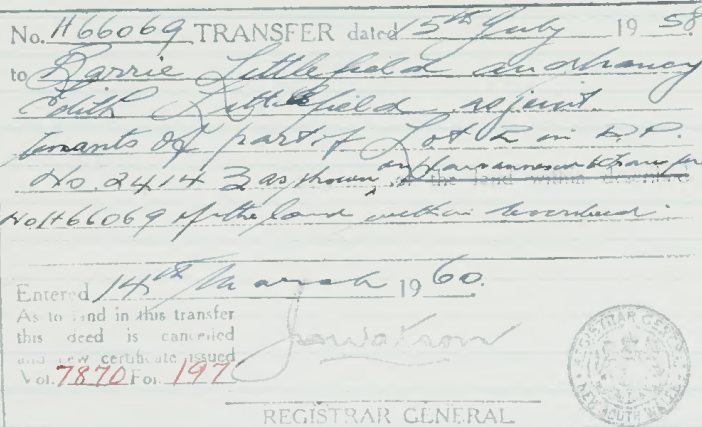 No. H66069 TRANSFER dated 15th July 19 58
to Barrie Littlefield and Nancy
Edith Littlefield as joint
tenants of part of Lot 2 in D.P.
No. 24143 as shown in plan annexed to Transfer of the land within described
No H66069 of the land within described.
Entered 14th March 19 60.
As to land in this transfer
this deed is cancelled
and new certificate issued
Vol. 7870 Fol. 197
REGISTRAR GENERAL
REGISTRAR GENERAL
NEW SOUTH WALES